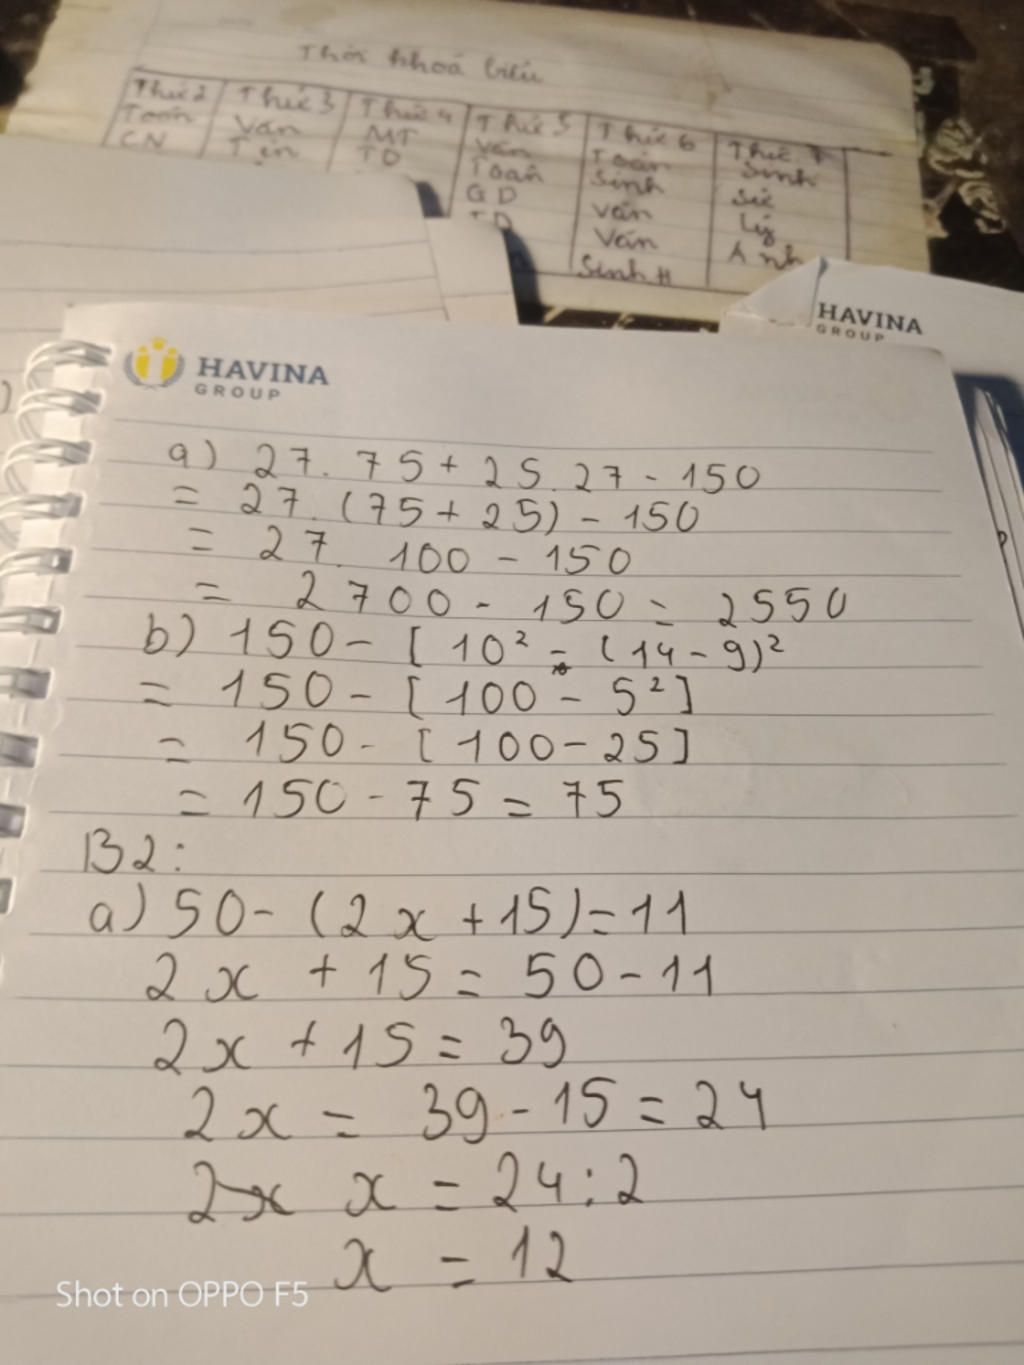 Thời khoá biểu
Thứ 2 Thứ 3 Thứ 4 Thứ 5 Thứ 6 Thứ 7
Toán Văn MT Văn Toán Sinh
CN Tin TD Toán Sinh Sử
GD Văn Lý
TD Văn Anh
Sinh H
HAVINA
GROUP
HAVINA
GROUP
a) 27. 75 + 25. 27 - 150
= 27. (75 + 25) - 150
= 27. 100 - 150
= 2700 - 150 = 2550
b) 150 - [ 10² - (14 - 9)²
= 150 - [ 100 - 5² ]
= 150 - [ 100 - 25 ]
= 150 - 75 = 75
B2:
a) 50 - (2x + 15) = 11
2x + 15 = 50 - 11
2x + 15 = 39
2x = 39 - 15 = 24
2x x = 24 : 2
x = 12
Shot on OPPO F5